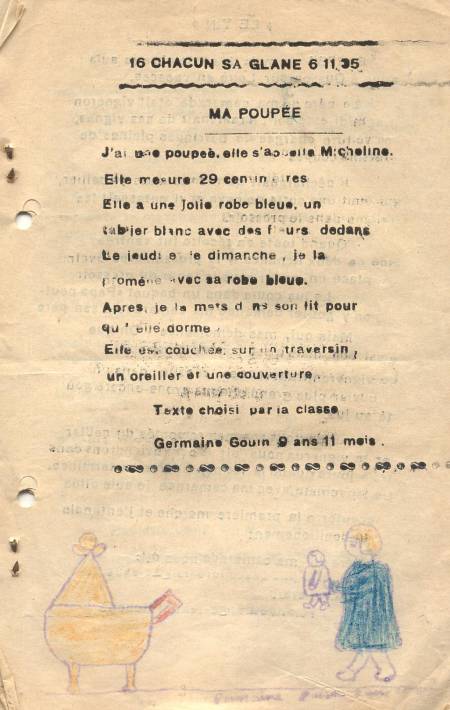 16 CHACUN SA GLANE 6 11.35
MA POUPÉE
J'ai une poupee, elle s'appelle Micheline.
Elle mesure 29 centimetres
Elle a une jolie robe bleue, un
tablier blanc avec des fleurs dedans
Le jeudi et le dimanche, je la
promène avec sa robe bleue.
Apres, je la mets dans son lit pour
qu'elle dorme.
Elle est couchée, sur un traversin,
un oreiller et une couverture
Texte choisi par la classe
Germaine Gouin 9 ans 11 mois.